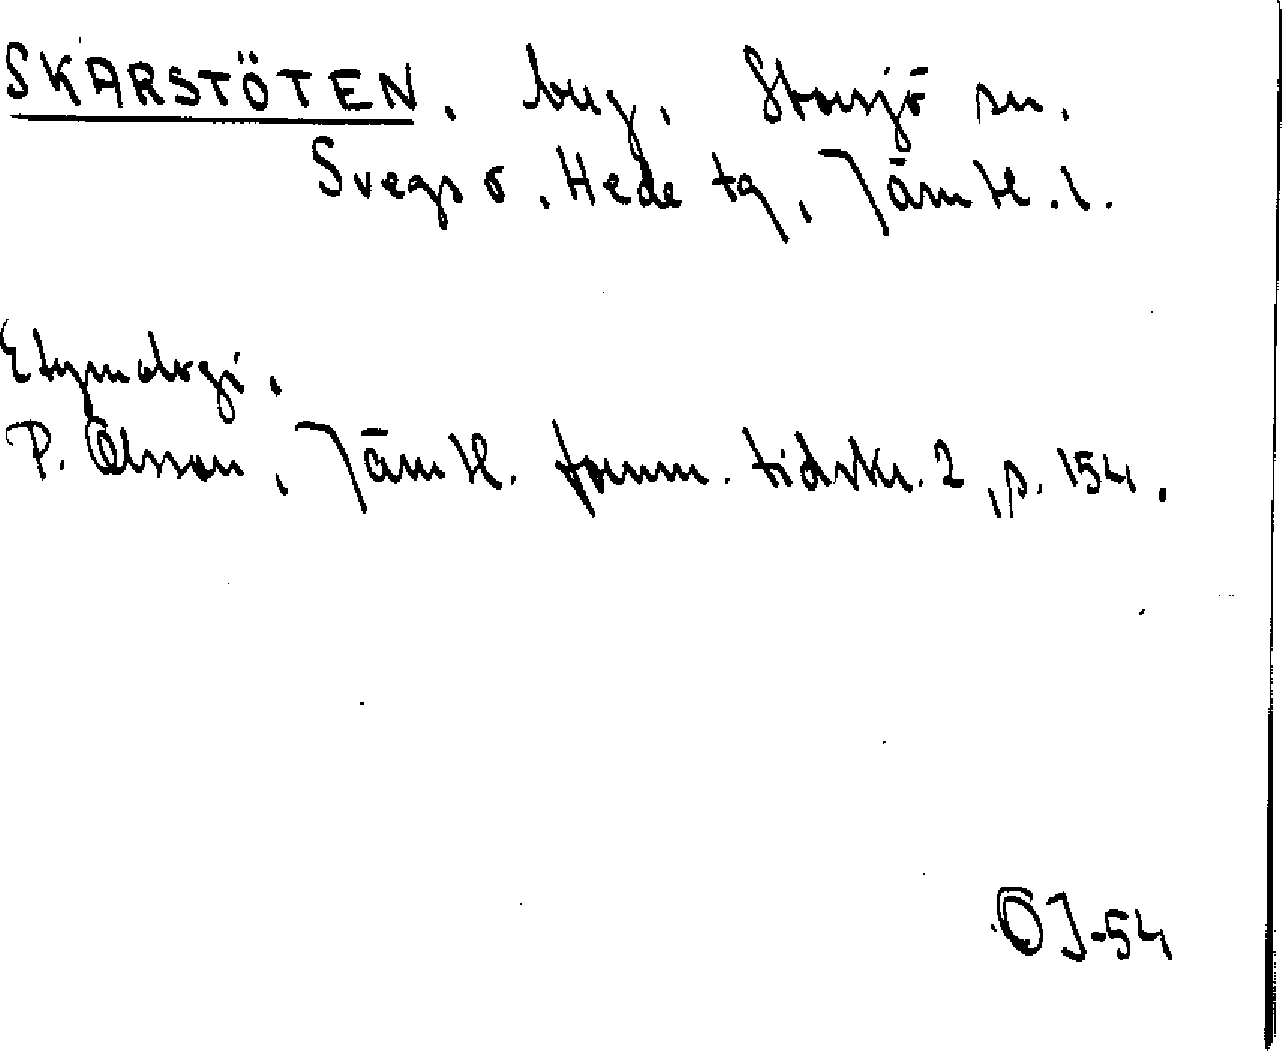 SKARSTÖTEN. berg. Storsjö sn.
Svegs o. Hede tg, Jämtl. l.
Etymologi.
P. Olsson, Jämtl. fornm. tidskr. 2, p. 154.
OJ-54